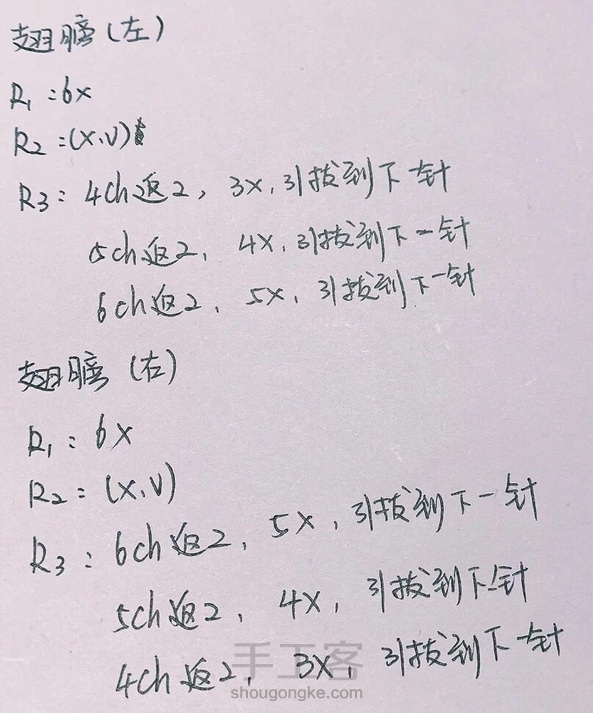 翅膀(左)
R1:6x
R2=(x.v)
R3: 4ch返2, 3x,引拔到下一针
5ch返2, 4x,引拔到下一针
6ch返2, 5x,引拔到下一针
翅膀(右)
R1: 6x
R2=(x.v)
R3: 6ch返2, 5x,引拔到下一针
5ch返2, 4x,引拔到下一针
4ch返2, 3x,引拔到下一针
手工客
shougongke.com